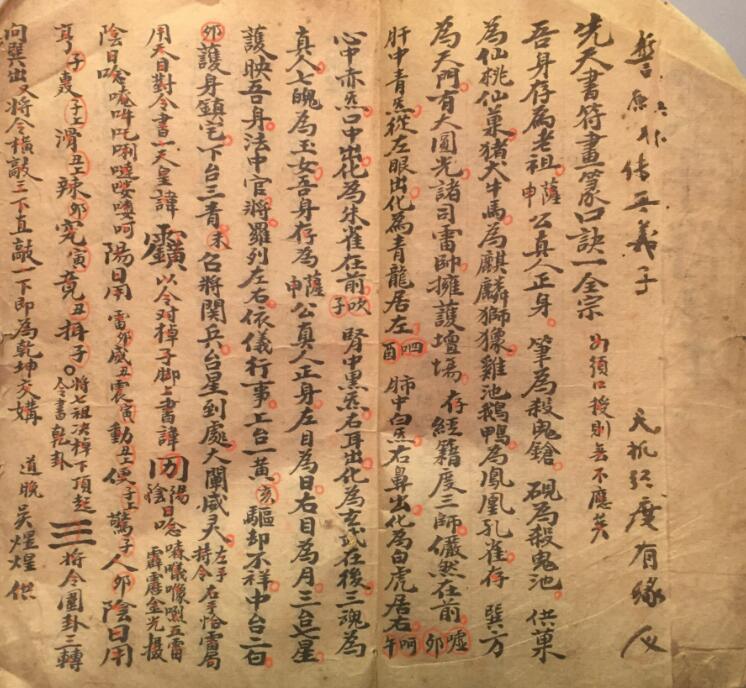 誓原不傳無義子 天机須度有緣人
先天書符畫篆口訣一全宗 必須口授則無不應矣
吾身存為老祖薩申公真人正身筆為殺鬼鎗硯為殺鬼池供菓
為仙桃仙菓猪犬牛馬為麒麟獅像雞池鵝鴨為鳳凰孔雀存巽方
為天門有大圓光諸司雷帥擁護壇場存經籍度三師儼然在前噓卯呵午
肝中青炁從左眼出化為青龍居左呬酉肺中白炁右鼻出化為白虎居右
心中赤炁口中出化為朱雀在前吹子腎中黑炁右耳出化為玄武在後三魂為
真人七魄為玉女吾身存為薩申公真人正身左目為日右目為月三台七星
護映吾身法中官將羅列左右依儀行事上台一黄亥驅却不祥中台二白
卯護身鎮宅下台三青未召將関兵台星到處大闡威灵左手持令右手恰雷局
用天目對令書一天皇諱以令对棹子脚上書諱陽日念陰五雷霹靂金光攝
陰日唸唵吽吒唎呵陽日用雷卯威丑震寅動丑便子上驚子人卯陰日用
亨子轟子上滑丑上辣卯究寅竟丑揖子。將七祖决棹下頂起令書乾卦三將令圈卦三轉
向巽出又將令横敲三下直敲一下即為乾坤交媾 道晚吳煋煌供